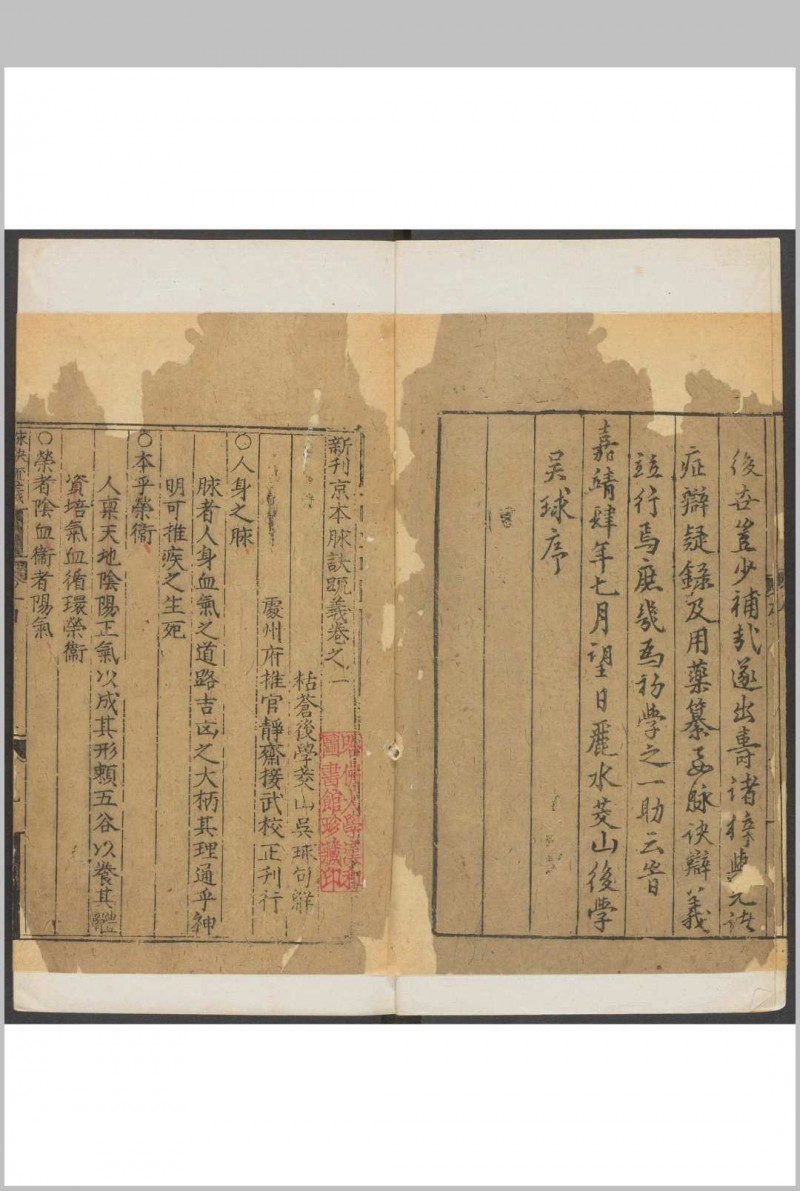 後世豈少補哉遂出壽諸梓與先註
症辯疑錄及用藥纂要脉訣辯義
竝行焉庶幾爲初學之一助云旹
嘉靖肆年七月望日麗水茭山後學
吴球序
新刊京本脉訣䟽義卷之一
粘蒼後學茭山吳球句觧
處州府推官靜齋接武校正刊行
哈佛大學漢和
圖書館珍藏印
〇人身之脉
脉者人身血氣之道路吉凶之大柄其理通乎神
明可推疾之生死
〇本乎榮衛
人稟天地陰陽正氣以成其形賴五谷以養其體
資培氣血循環榮衛
〇榮者陰血衞者陽氣